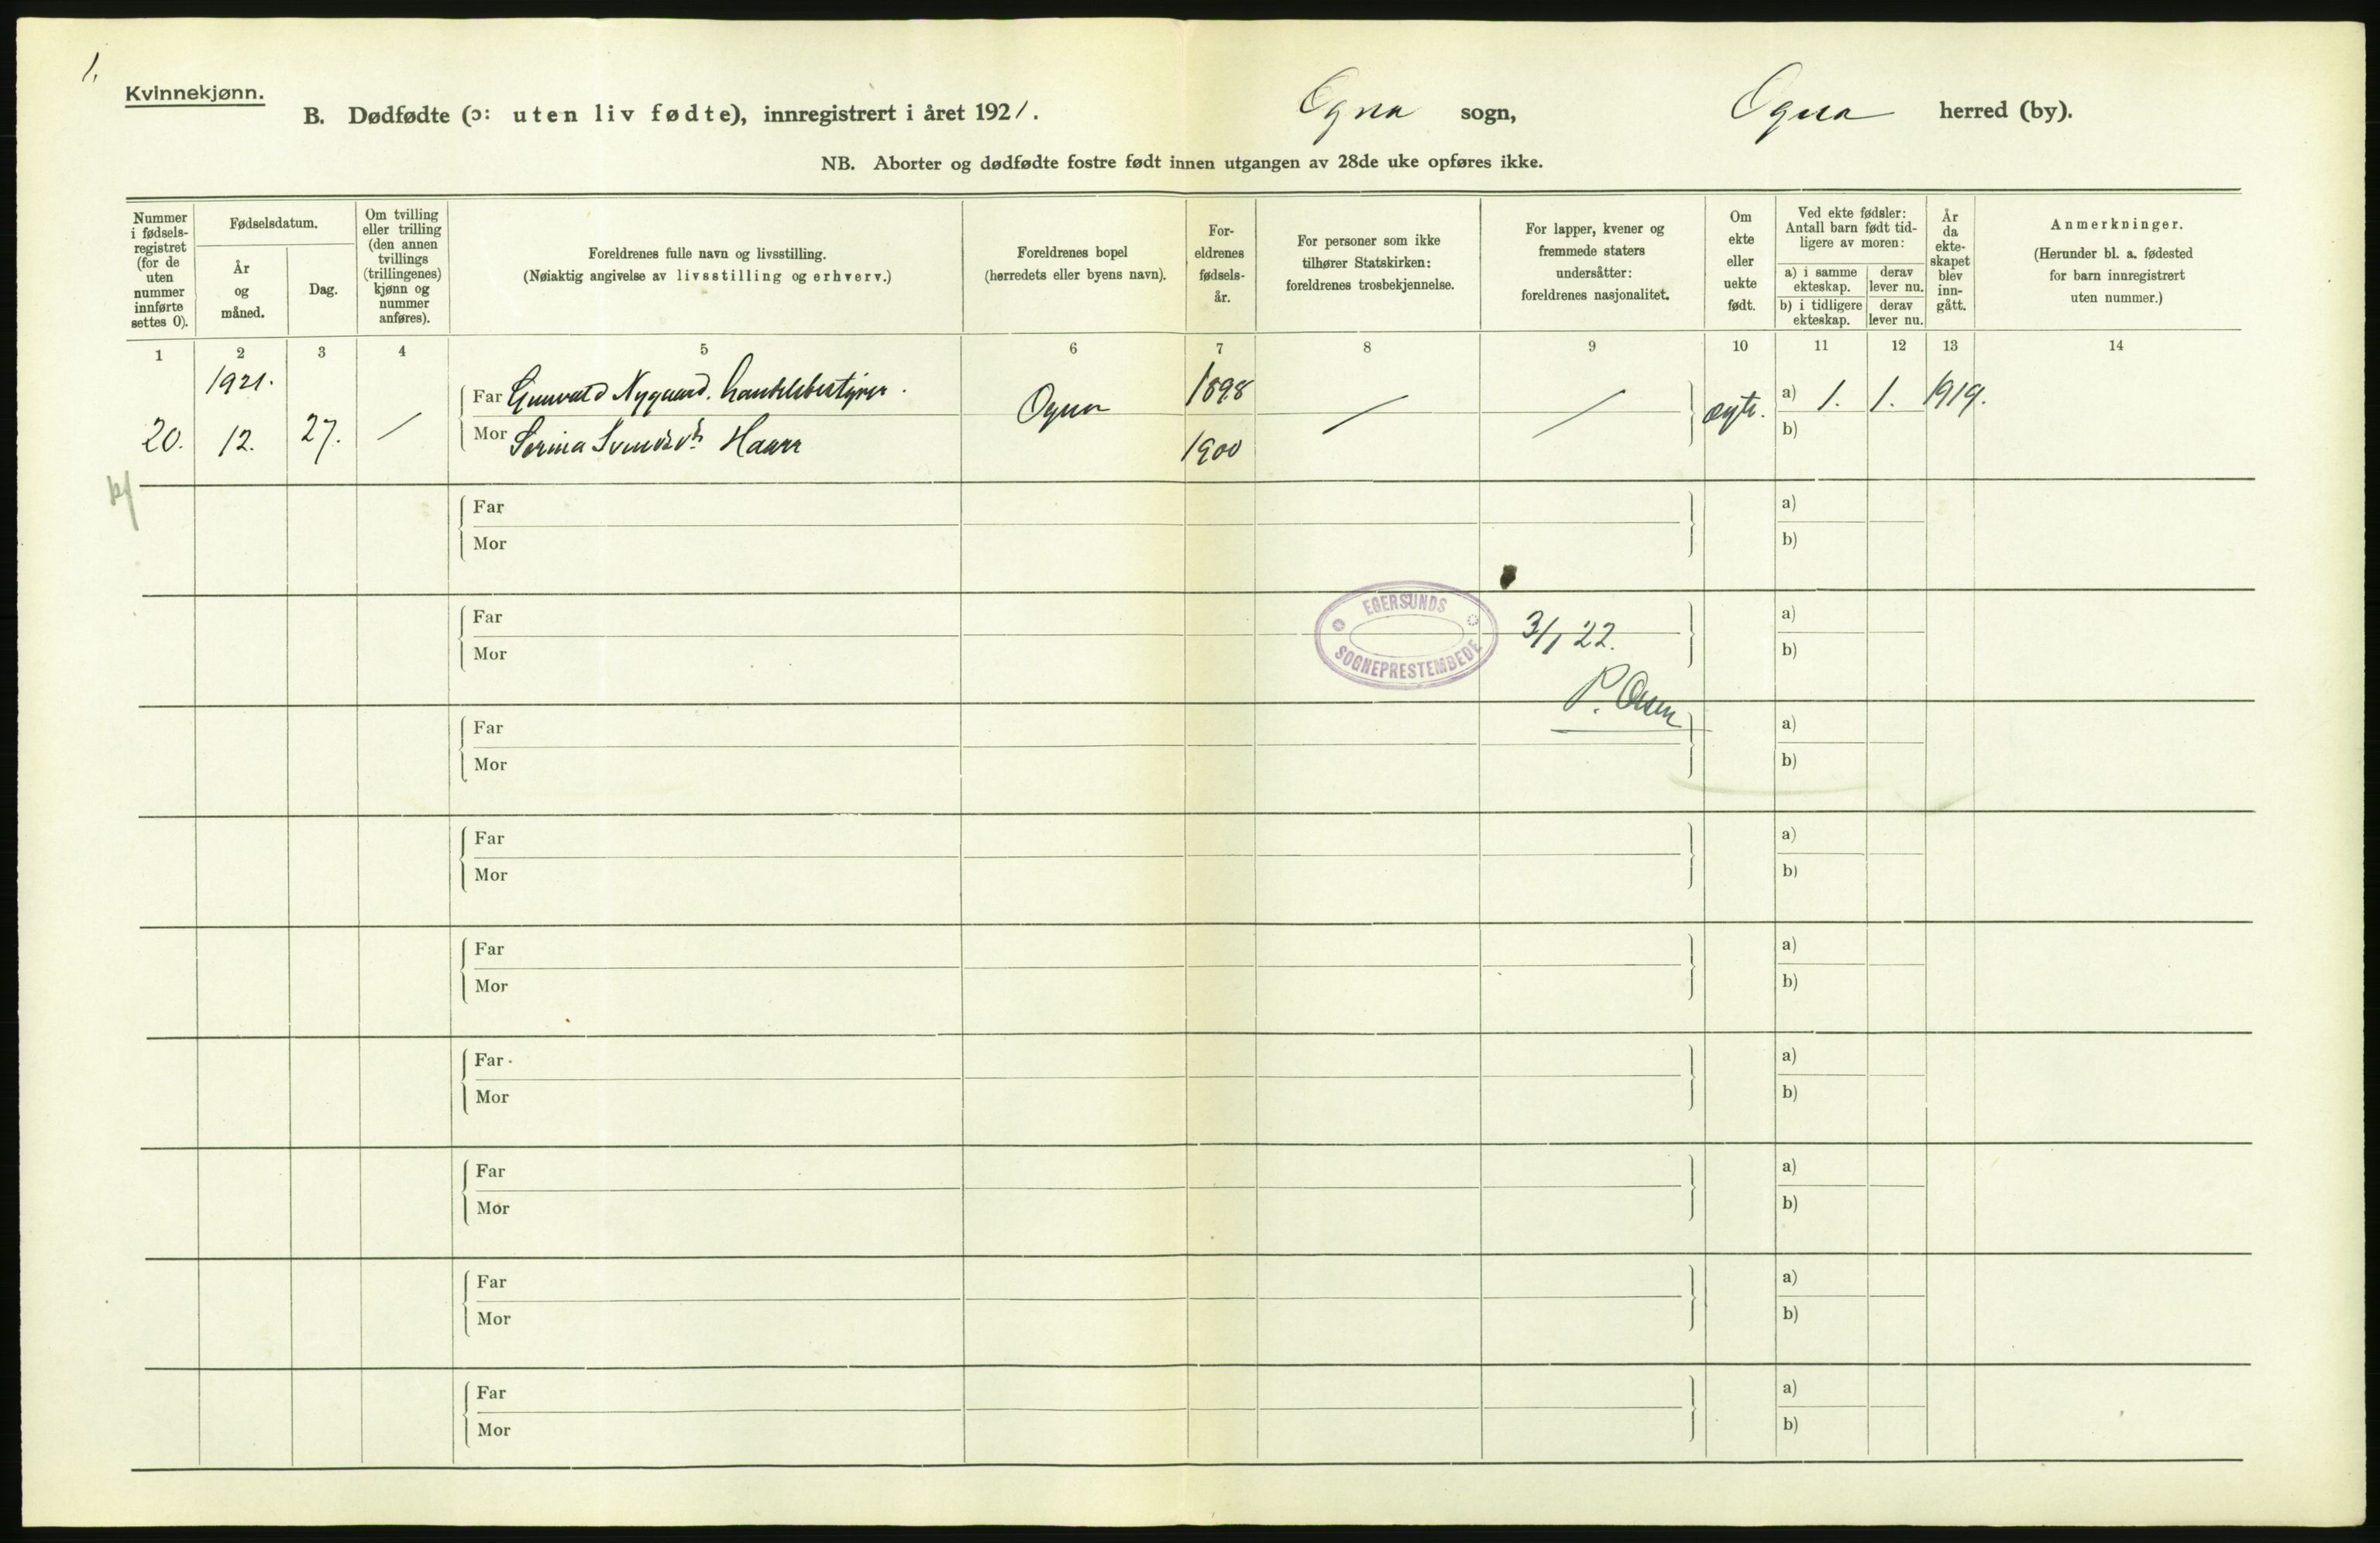 1.
Kvinnekjønn.
B. Dødfødte (ɔ: uten liv fødte), innregistrert i året 1921. Ogna sogn, Ogna herred (by).
NB. Aborter og dødfødte fostre født innen utgangen av 28de uke opføres ikke.
Nummer
i fødsels-
registret
(for de
uten
nummer
innførte
settes 0).
Fødselsdatum.
År
og
måned.
Dag.
Om tvilling
eller trilling
(den annen
tvillings
(trillingenes)
kjønn og
nummer
anføres).
Foreldrenes fulle navn og livsstilling.
(Nøiaktig angivelse av livsstilling og erhverv.)
Foreldrenes bopel
(herredets eller byens navn).
For-
eldrenes
fødsels-
år.
For personer som ikke
tilhører Statskirken:
foreldrenes trosbekjennelse.
For lapper, kvener og
fremmede staters
undersåtter:
foreldrenes nasjonalitet.
Om
ekte
eller
uekte
født.
Ved ekte fødsler:
Antall barn født tid-
ligere av moren:
a) i samme
ekteskap.
derav
lever nu.
b) i tidligere
ekteskap.
derav
lever nu.
År
da
ekte-
skapet
blev
inn-
gått.
Anmerkninger.
(Herunder bl. a. fødested
for barn innregistrert
uten nummer.)
1 2 3 4 5 6 7 8 9 10 11 12 13 14
1921.
Far Gunvald Nygaard. handelsbestyrer. 1898 a) 1. 1. 1919.
20. 12. 27. / Mor Serina Svendsdt. Haarr Ogna 1900 / / ægte. b)
Far a)
Mor b)
EGERSUNDS
SOGNEPRESTEMBEDE
Far 3/1 22. a)
Mor b)
P. Olsen
Far a)
Mor b)
Far a)
Mor b)
Far a)
Mor b)
Far a)
Mor b)
Far a)
Mor b)
Far a)
Mor b)
Far a)
Mor b)